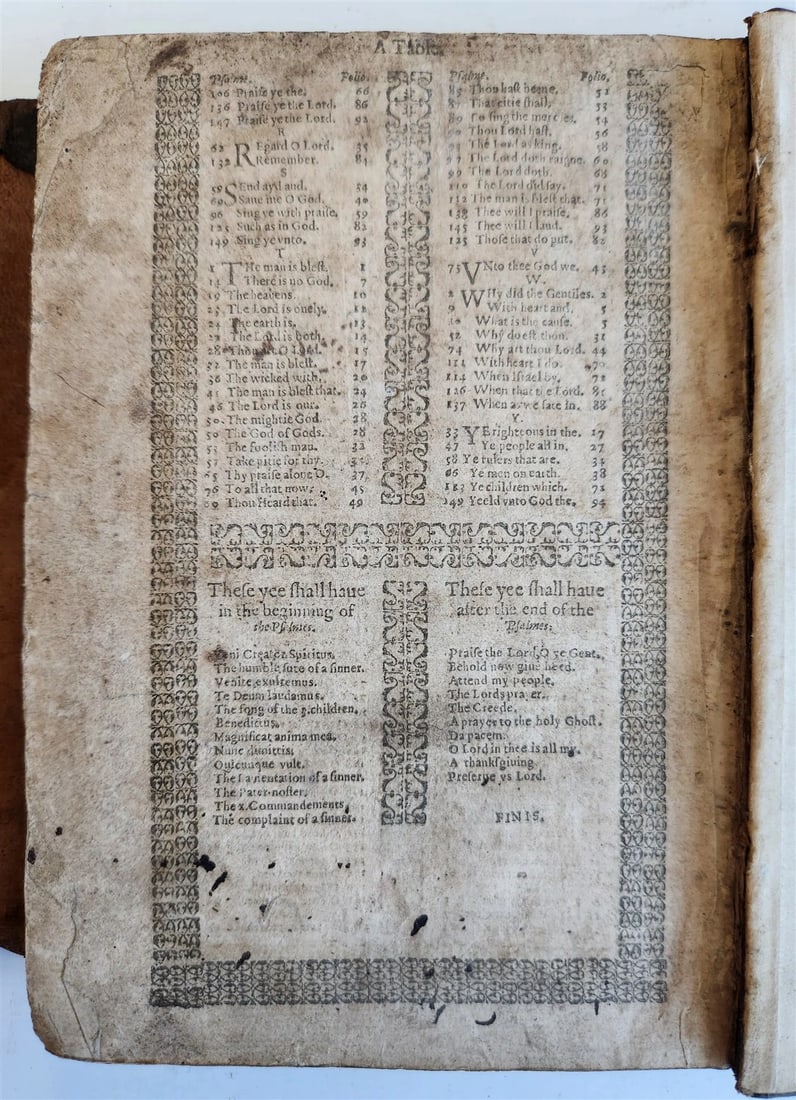 A Table.
Psalme. Folio.
106 Praiſe ye the. 66
136 Praiſe ye the Lord. 86
147 Praiſe ye the Lord. 92
R
62 REgard O Lord. 35
132 Remember. 84
S
59 SEnd ayd and. 34
69 Saue me O God. 40
96 Sing ye with praiſe. 59
125 Such as in God. 82
149 Sing ye vnto. 93
T
1 THe man is bleſt. 1
14 There is no God. 7
19 The heavens. 10
23 The Lord is onely. 12
24 The earth is. 13
The Lord is both. 14
28 Thou art O Lord. 15
32 The man is bleſt. 17
36 The wicked with. 20
41 The man is bleſt that. 24
46 The Lord is our. 26
50 The mightie God. 28
50 The God of Gods. 28
53 The fooliſh man. 32
57 Take pitie for thy.
65 Thy praiſe alone O. 37
76 To all that now. 45
Thou Heard that. 49
Pſalme. Folio,
85 Thou haſt beene. 52
87 That citie ſhall, 53
89 To ſing the mercies. 54
90 Thou Lord haſt. 56
The Lord as king. 58
97 The Lord doth raigne. 60
99 The Lord doth. 68
110 The Lord did ſay. 71
112 The man is bleſt that. 71
138 Thee will I praiſe. 86
145 Thee will I laud. 93
125 Thoſe that do put. 82
V
75 VNto thee God we. 45
W.
2 WHy did the Gentiles. 2
9 With heart and. 5
10 What is the cauſe. 5
52 Why doeſt thou. 31
74 Why art thou Lord. 44
111 With heart I do. 70
114 When Iſrael by. 72
126 When that the Lord. 82
137 When as we ſate in. 88
Y.
33 YE righteous in the. 17
47 Ye people all in. 27
58 Ye rulers that are. 33
66 Ye men on earth. 38
113 Ye children which. 72
149 Yeeld vnto God the. 94
Theſe yee ſhall haue
in the beginning of
the Pſalmes.
Veni Creator Spiritus.
The humble ſute of a ſinner.
Venite exultemus.
Te Deum laudamus.
The ſong of the 3. children.
Benedictus.
Magnificat anima mea.
Nunc dimittis.
Quicunque vult.
The Lamentation of a ſinner.
The Pater-noſter.
The x. Commandements.
The complaint of a ſinner.
Theſe yee ſhall haue
after the end of the
Pſalmes.
Praiſe the Lord, O ye Gent.
Behold now giue heed.
Attend my people.
The Lords prayer.
The Creede.
A prayer to the holy Ghoſt.
Da pacem.
O Lord in thee is all my.
A thankſgiuing
Preſerue vs Lord.
FINIS.